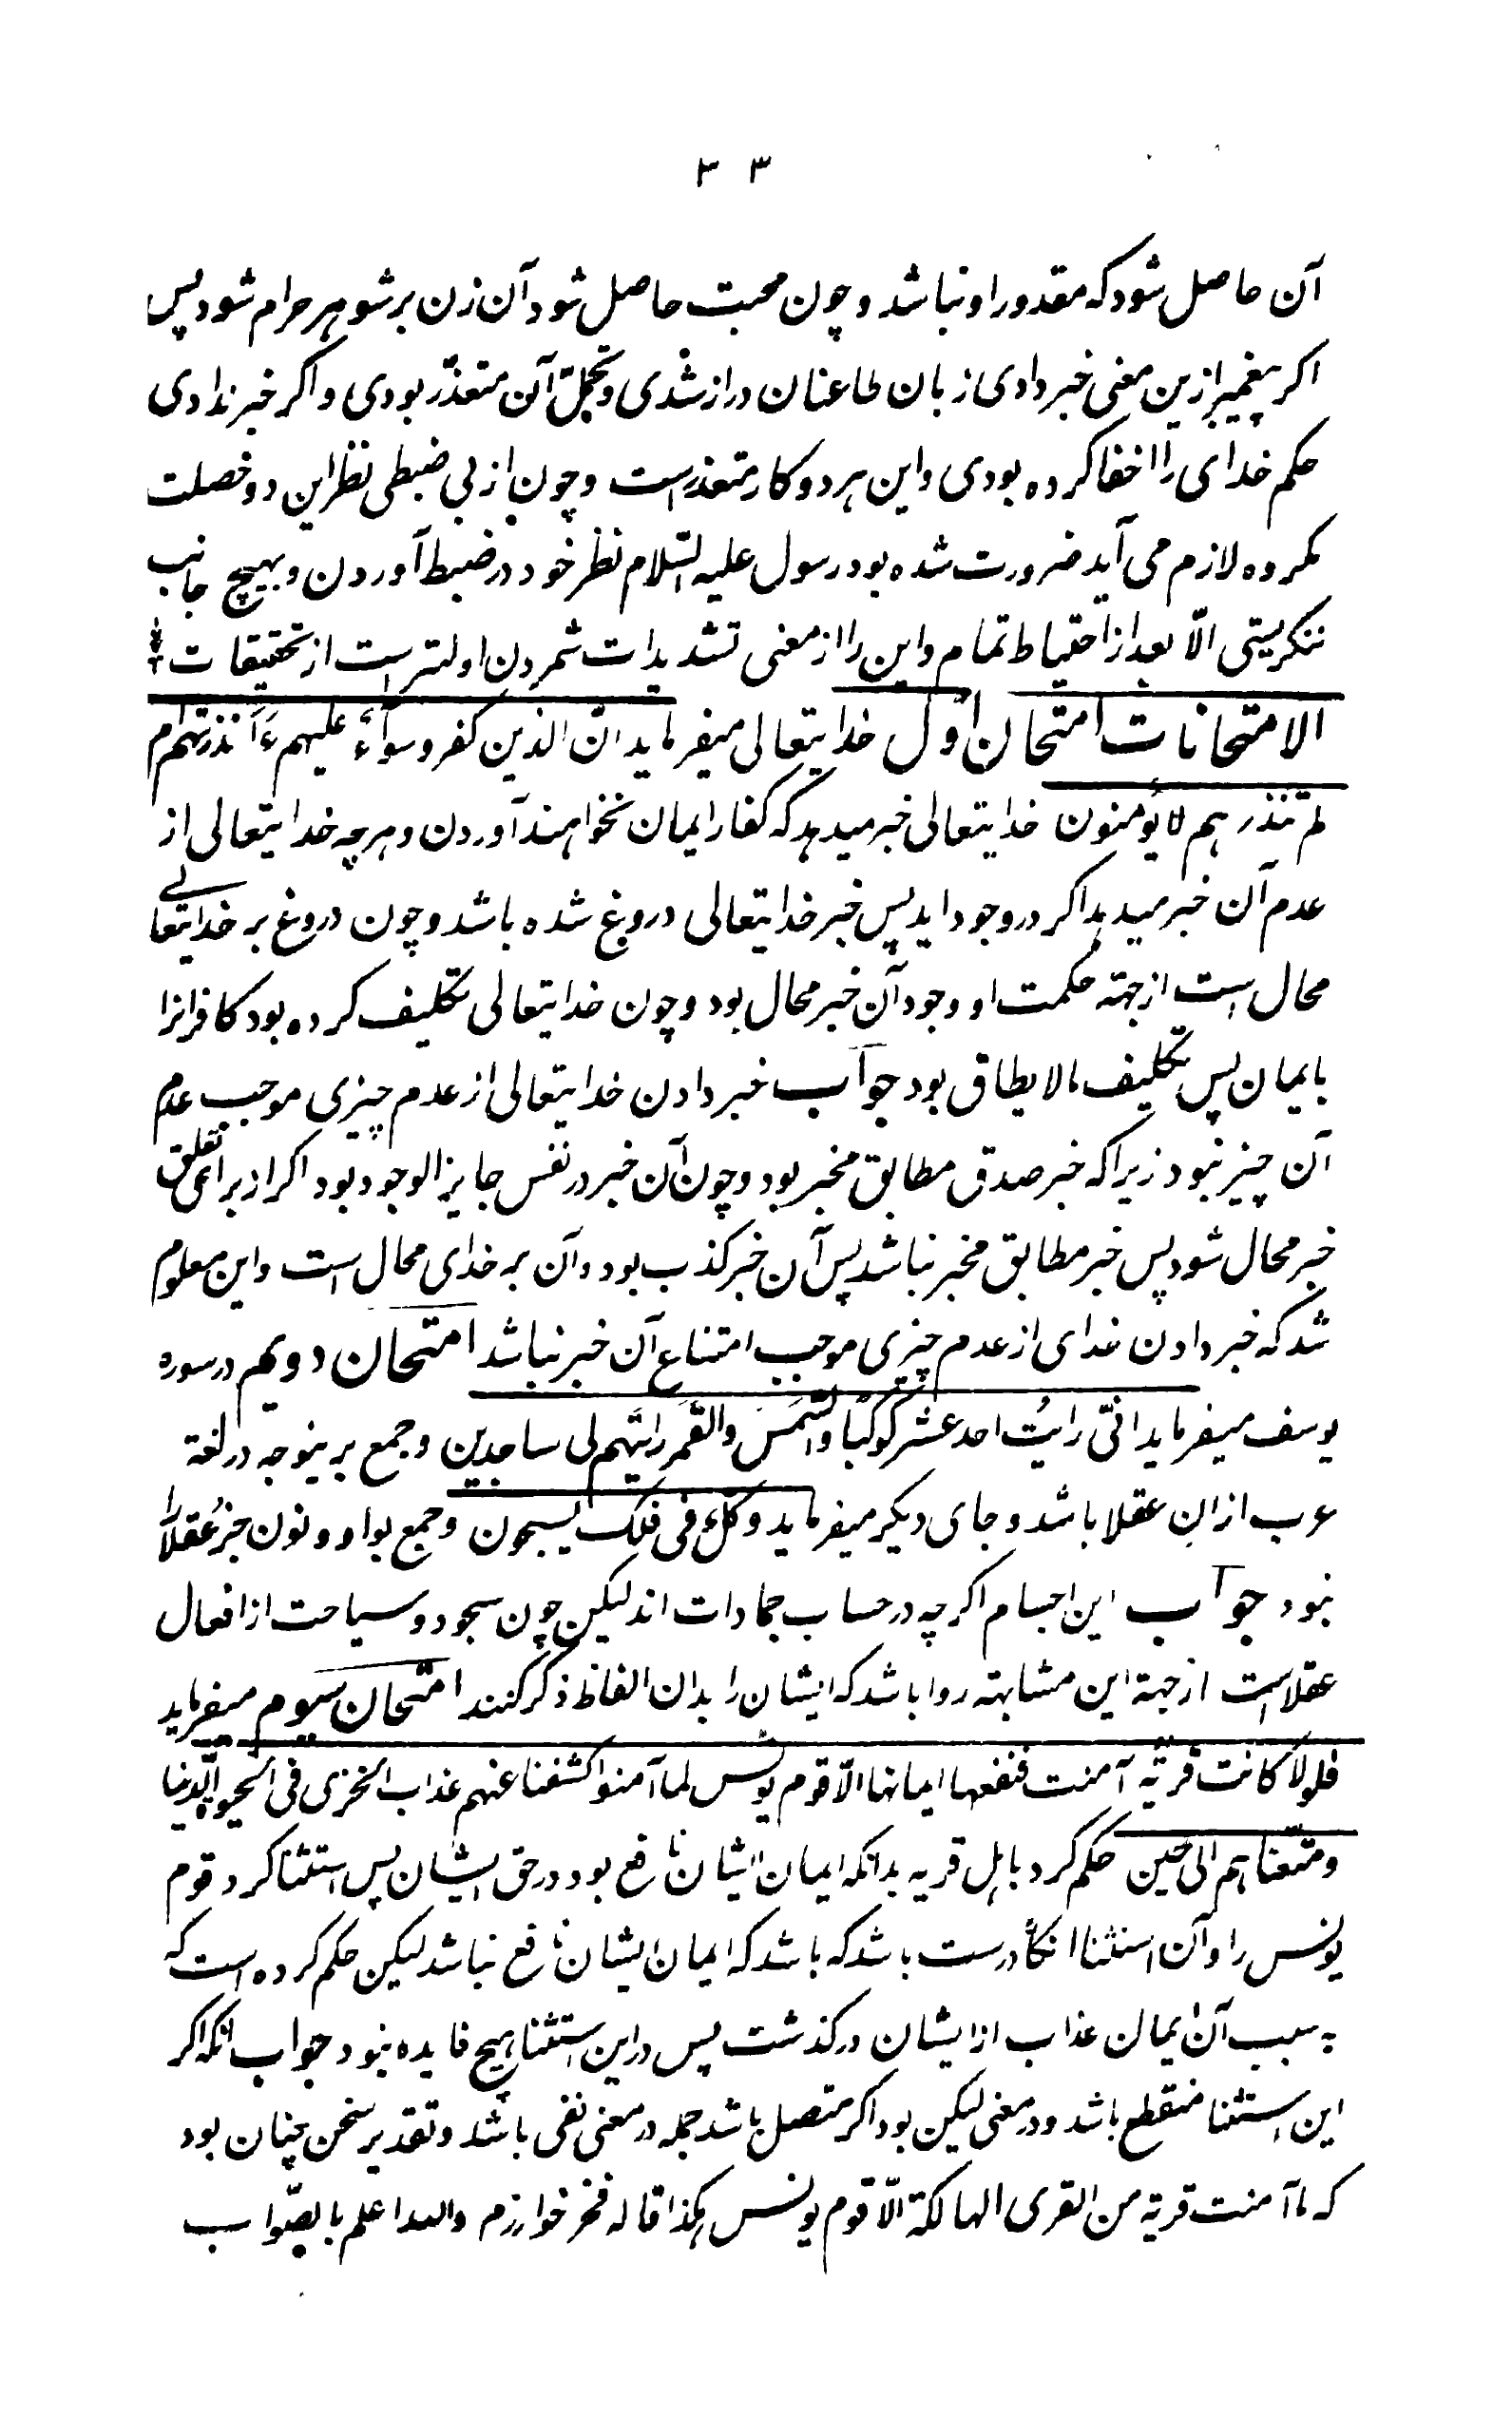 ۲ ۳
آن حاصل شود که مقدور او نباشد و چون محبت حاصل شود آن زن بر شوهر حرام شود پس
اکر پیغمبر ازین معنی خبر دادی زبان طاعنان دراز شدی و تحمّل آن متعذّر بودی و اکر خبر ندادی
حکم خدای را اخفا کرده بودی و این هر دو کار متعذر است و چون از بی ضبطی نظر این دو خصلت
مکروه لازم می آید ضرورت شده بود رسول علیه السّلام نظر خود در ضبط آوردن و بهیچ جانب
ننکریستی الّا بعد از احتیاط تمام و این را از معنی تشدیدات شمردن اولیتر است از تحقیقات
الامتحانات امتحان اول خدایتعالی میفرماید انّ الذین کفروا سوآء علیهم ءَاَنذرتهم ام
لم تنذرهم لا یؤمنون خدایتعالی خبر میدهد که کفار ایمان نخواهند آوردن و هرچه خدایتعالی از
عدم آن خبر میدهد اکر در وجود اید پس خبر خدایتعالی دروغ شده باشد و چون دروغ بر خدایتعالی
محال است از جهته حکمت او وجود آن خبر محال بود و چون خدایتعالی تکلیف کرده بود کافرانرا
بایمان پس تکلیف مالایطاق بود جوآب خبر دادن خدایتعالی از عدم چیزی موجب عدم
آن چیز نبود زیرا که خبر صدق مطابق مخبر بود و چون آن خبر در نفس جایز الوجود بود اکر از برای تعلق
خبر محال شود پس خبر مطابق مخبر نباشد پس آن خبر کذب بود و آن بر خدای محال است و این معلوم
شد که خبر دادن خدای از عدم چیزی موجب امتناع آن خبر نباشد امتحان دویم در سوره
یوسف میفرماید انّی رایتُ احد عشر کوکبًا والشّمسَ والقمرَ رایتهم لی ساجدین و جمع برینوجه در لغة
عرب از ان عقلا باشد و جای دیکر میفرماید و کلٌ فی فلک یسبحون و جمع بواو و نون جز عقلا را
نبود جوآب این اجسام اکرچه در حساب جمادات اند لیکن چون سجود و سیاحت از افعال
عقلاست از جهة این مشابهته روا باشد که ایشان را بدان الفاظ ذکر کنند امتحان سیوم میفرماید
فلولا کانت قریةٌ آمنت فنفعها ایمانها الّا قوم یونس لما آمنوا کشفنا عنهم عذاب الخزی فی الحیوة الدّنیا
و متّعناهم الی حین حکم کرد باهل قریه بدانکه ایمان ایشان نافع بود در حق ایشان پس استثنا کرد قوم
یونس را و آن استثنا انکاه درست باشد که باشد که ایمان ایشان نافع نباشد لیکن حکم کرده است که
به سبب آن ایمان عذاب از ایشان درکذشت پس در این استثنا هیچ فایده نبود جواب انکه اکر
این استثنا منقطع باشد و در معنی لیکن بود اکر متصل باشد جمله در معنی نفی باشد و تقدیر سخن چنان بود
که ما آمنت قریة من القری الهالکة الّا قوم یونس هکذا قاله فخر خوارزم والله اعلم بالصّواب